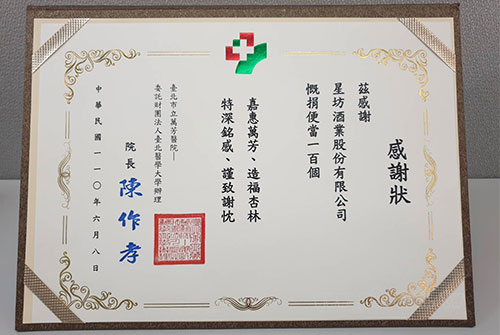 感謝狀
茲感謝
星坊酒業股份有限公司
慨捐便當一百個
嘉惠萬芳、造福杏林
特深銘感、謹致謝忱
臺北市立萬芳醫院—
委託財團法人臺北醫學大學辦理
院長 陳作孝
中華民國一一〇年六月八日